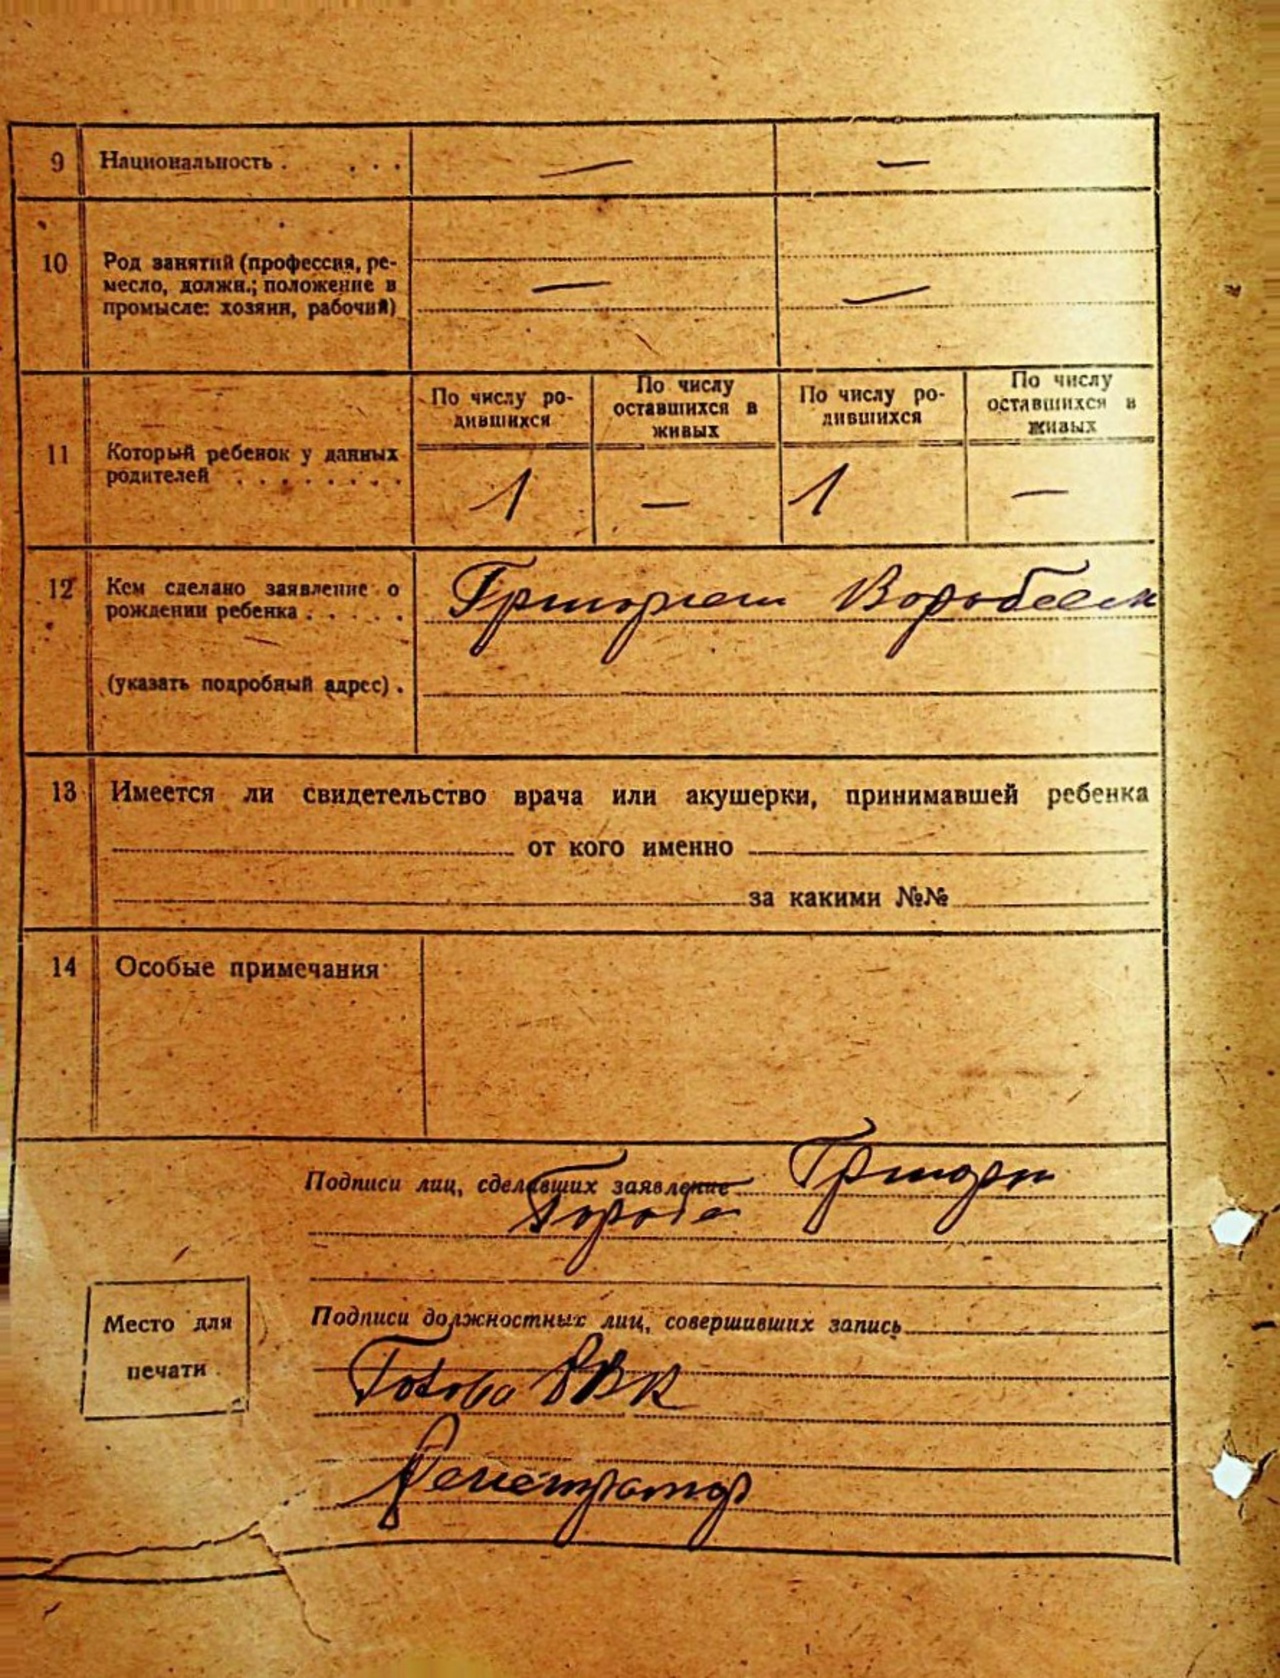 9 Национальность . . . . — —
10 Род занятий (профессия, ре-
месло, должн.; положение в — —
промысле: хозяин, рабочий)
По числу ро-
дившихся
По числу
оставшихся в
живых
По числу ро-
дившихся
По числу
оставшихся в
живых
11 Который ребенок у данных
родителей . . . . . . . .
1 — 1 —
12 Кем сделано заявление о
рождении ребенка . . . . .
Григорием Воробеем
(указать подробный адрес) .
13 Имеется ли свидетельство врача или акушерки, принимавшей ребенка
от кого именно
за какими №№
14 Особые примечания
Подписи лиц, сделавших заявление Григори
Место для
печати
Подписи должностных лиц, совершивших запись
Голова
Регистратор